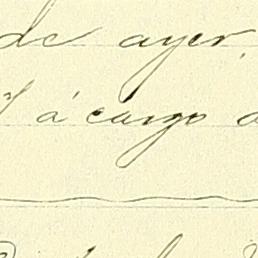 de ayer,
á cargo